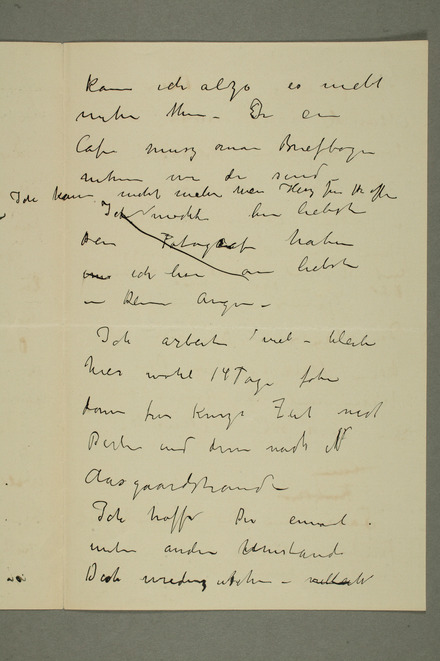 kann ich also es nicht
mehr thun – In ein
Cafe musz man Briefbogen
nehmen wie da sind –
Ich kann nicht mehr
Ich möchte am liebsten
Dein Fotograf haben
ich am liebsten
in Deine Augen –
Ich arbeite viel – bleibe
hier wohl 14 Tage fahre
dann für kurze Zeit nach
Berlin und dann nach
Aasgaardstrande
Ich hoffe Du einmal
unter andere Umstande
Dich wiederzusehen – vielleicht